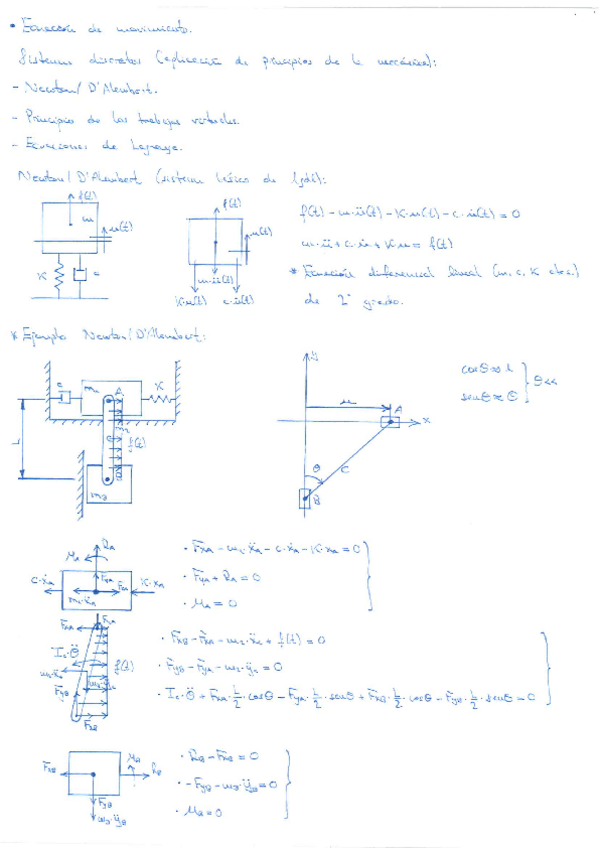 • Ecuación de movimiento.
Sistemas discretos (aplicación de principios de la mecánica):
- Newton/D'Alembert.
- Principio de los trabajos virtuales.
- Ecuaciones de Lagrange.
Newton/D'Alembert (sistema básico de 1gdl):
f(t)
m
u(t)
K
c
f(t)
u(t)
m·ü(t)
K·u(t) c·u̇(t)
f(t) - m·ü(t) - K·u(t) - c·u̇(t) = 0
m·ü + c·u̇ + K·u = f(t)
* Ecuación diferencial lineal (m, c, K ctes.)
de 2º grado.
* Ejemplo Newton/D'Alembert:
c
m₁
A
K
m₂
f(t)
L
B
m₃
y
u
A
x
θ
C
B
cosθ ≈ 1
senθ ≈ θ
θ<<
R_A
M_A
F_yA
c·ẋ_A
F_xA
K·x_A
m₁·ẍ_A
· F_xA - m₁·ẍ_A - c·ẋ_A - K·x_A = 0
· F_yA + R_A = 0
· M_A = 0
F_yA
F_xA
I_c·θ̈
f(t)
m₂·ẍ_c
m₂·ÿ_c
F_yB
F_xB
· F_xB - F_xA - m₂·ẍ_c + f(t) = 0
· F_yB - F_yA - m₂·ÿ_c = 0
· I_c·θ̈ + F_xA·L/2·cosθ - F_yA·L/2·senθ + F_xB·L/2·cosθ - F_yB·L/2·senθ = 0
F_xB
M_B
R_B
F_yB
m₃·ÿ_B
· R_B - F_xB = 0
· -F_yB - m₃·ÿ_B = 0
· M_B = 0